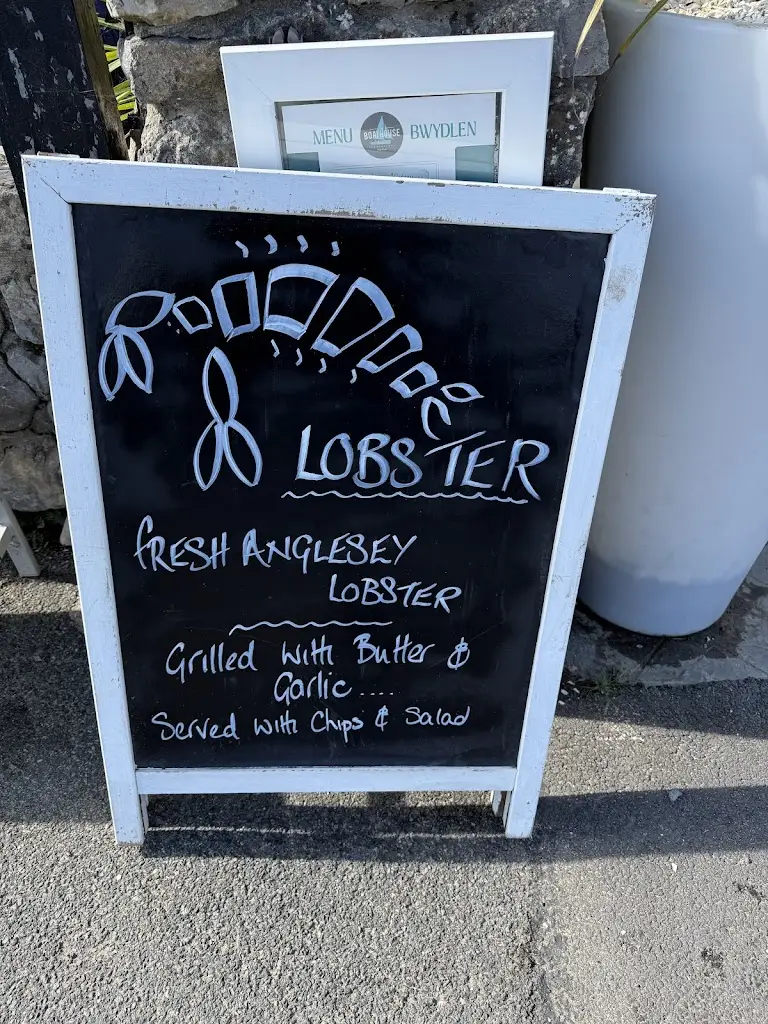 MENU BOATHOUSE BWYDLEN
LOBSTER
FRESH ANGLESEY
LOBSTER
Grilled with Butter &
Garlic ....
Served with Chips & Salad